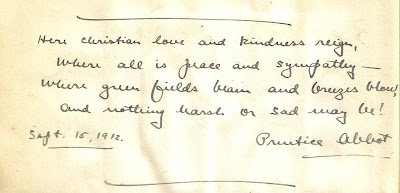 Here Christian love and kindness reign,
Where all is peace and sympathy —
Where green fields beam and breezes blow,
And nothing harsh or sad may be!
Sept. 15, 1912. Prentice Abbot